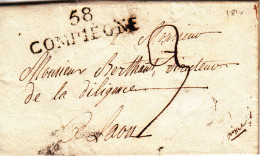 58
COMPIEGNE
Monsieur
Monsieur Berthaut, Directeur
de la diligence
a Laon